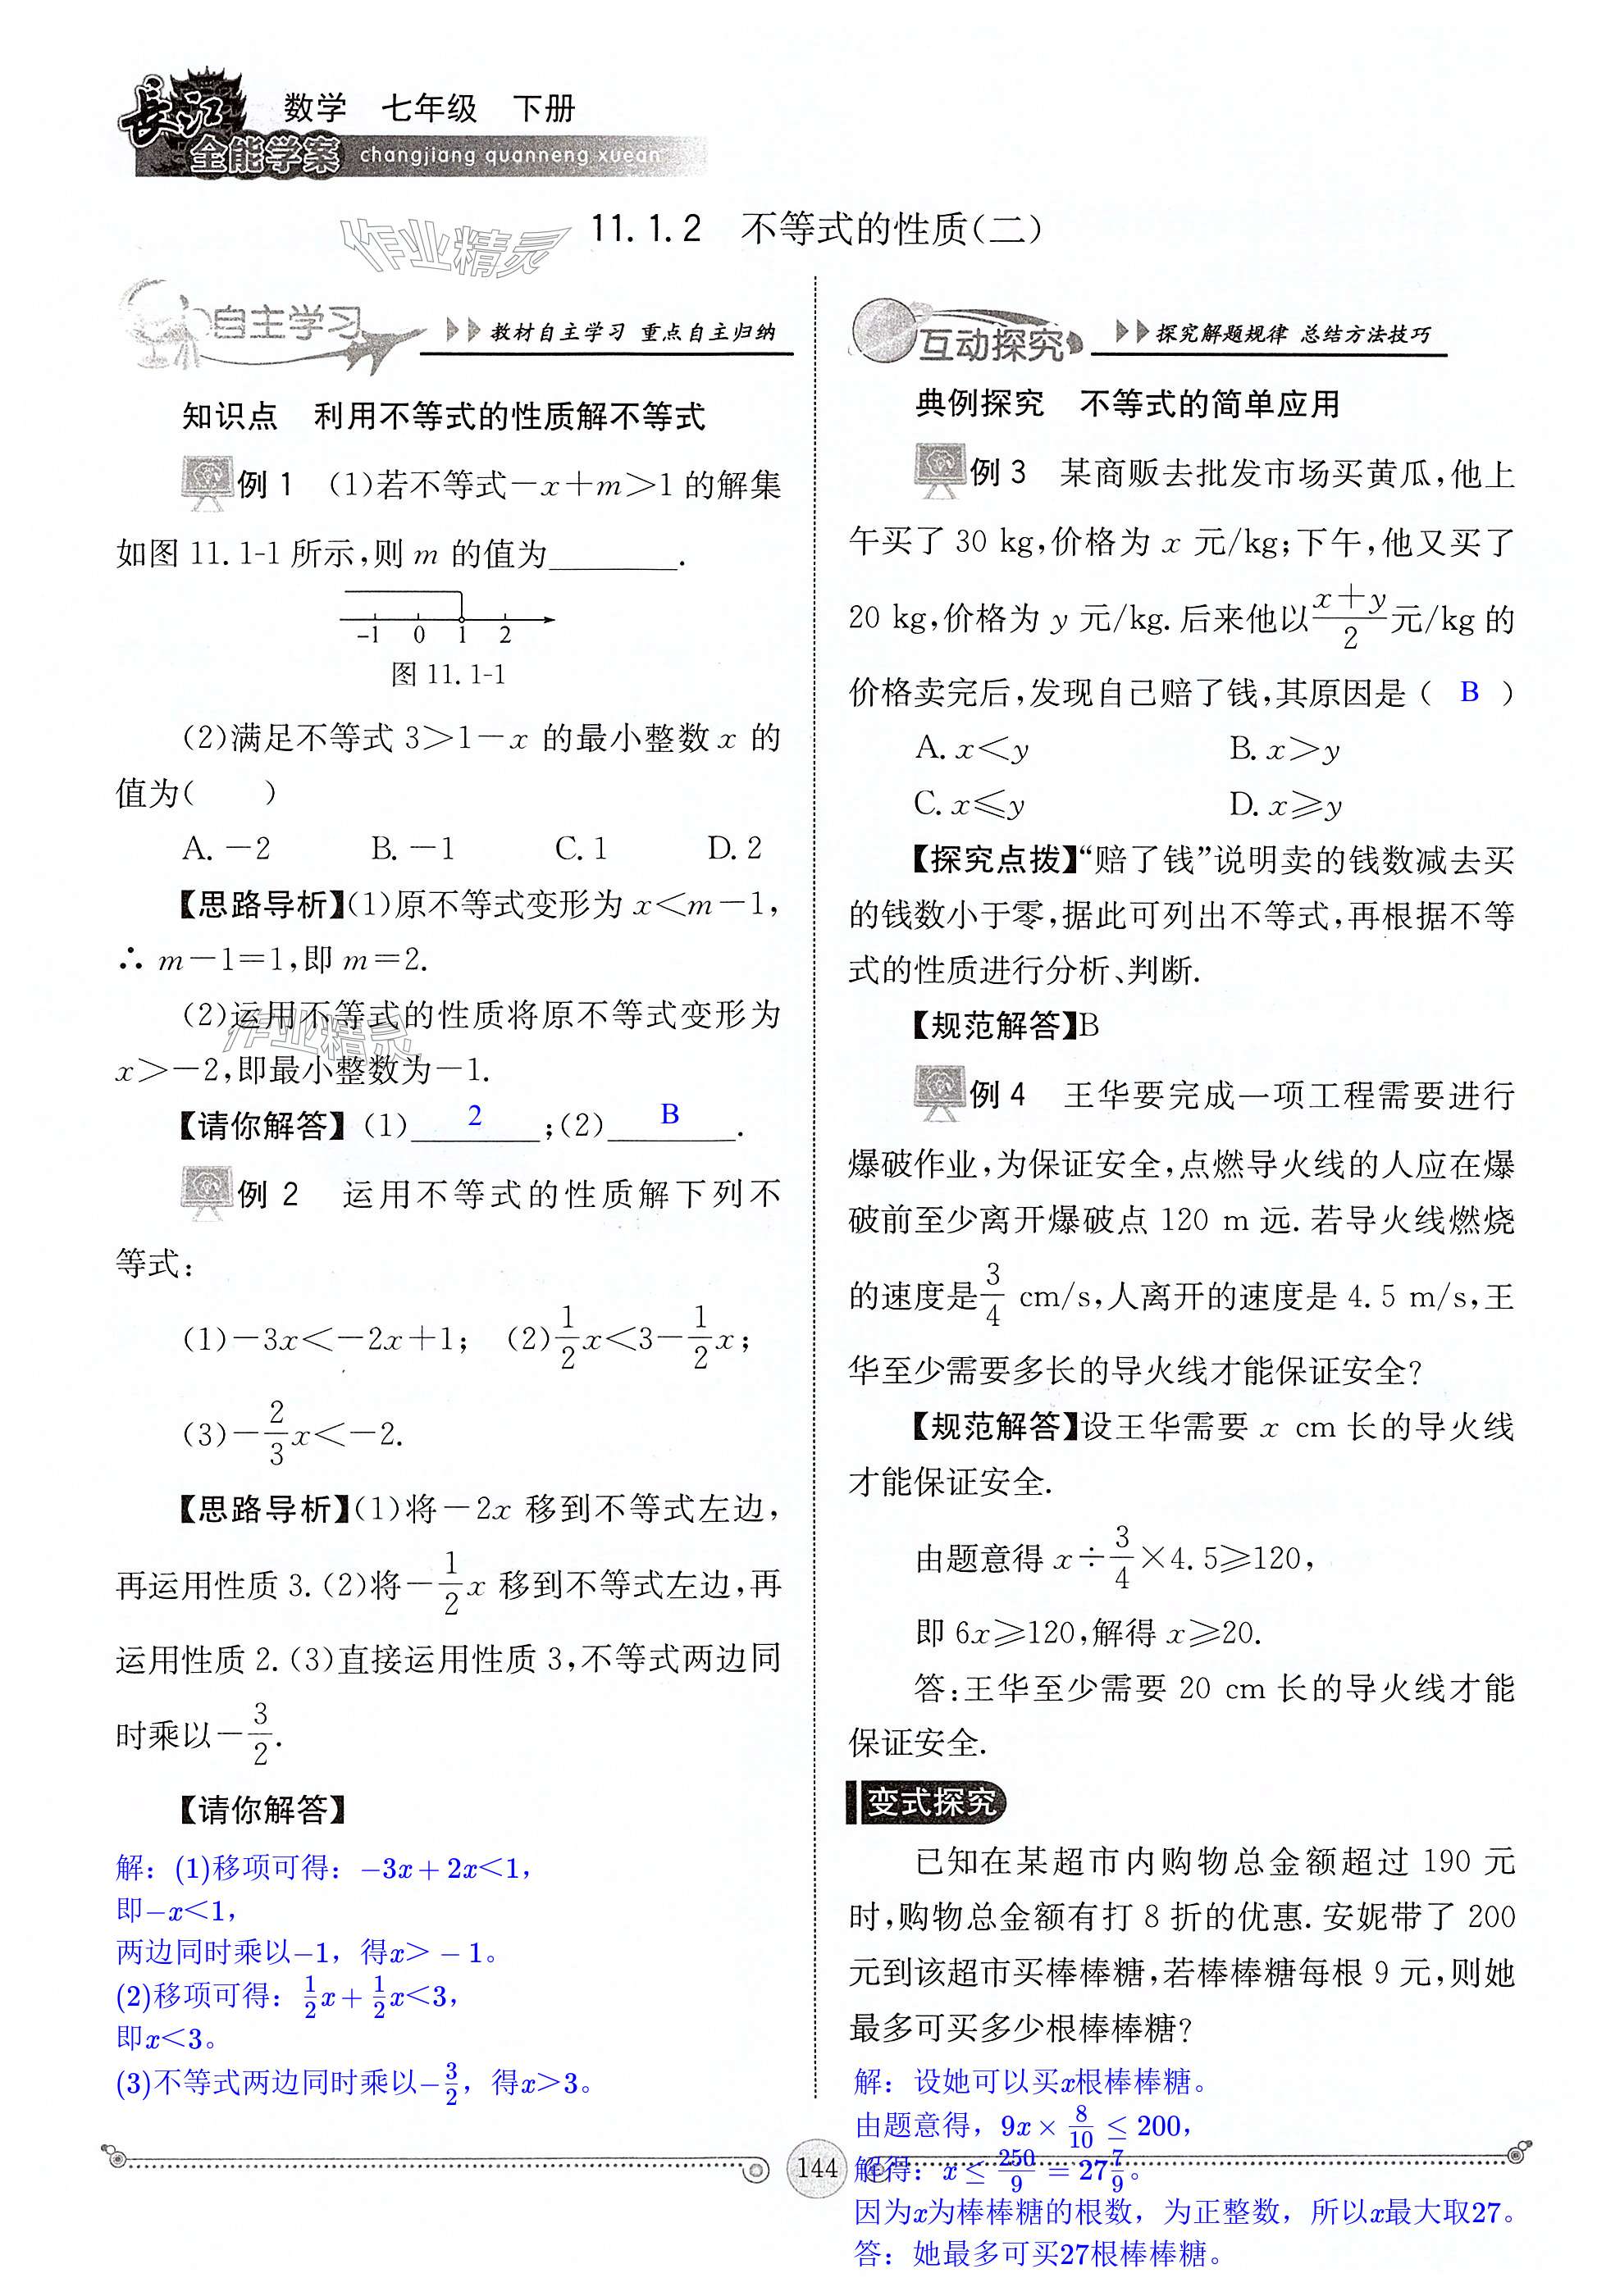 長江 数学 七年级 下册
全能学案 changjiang quanneng xuean
作业精灵
11.1.2 不等式的性质(二)
自主学习 教材自主学习 重点自主归纳
知识点 利用不等式的性质解不等式
例 1 (1)若不等式-x+m>1 的解集
如图 11.1-1 所示,则 m 的值为________.
-1 0 1 2
图 11.1-1
(2)满足不等式 3>1-x 的最小整数 x 的
值为( )
A.-2 B.-1 C.1 D.2
【思路导析】(1)原不等式变形为 x<m-1,
∴ m-1=1,即 m=2.
(2)运用不等式的性质将原不等式变形为
x>-2,即最小整数为-1.
作业精灵
【请你解答】(1)___2___;(2)___B___.
例 2 运用不等式的性质解下列不
等式:
(1)-3x<-2x+1; (2)1/2x<3-1/2x;
(3)-2/3x<-2.
【思路导析】(1)将-2x 移到不等式左边,
再运用性质 3.(2)将-1/2x 移到不等式左边,再
运用性质 2.(3)直接运用性质 3,不等式两边同
时乘以-3/2.
【请你解答】
解：(1)移项可得：-3x+2x<1，
即-x<1，
两边同时乘以-1，得x>-1。
(2)移项可得：1/2x+1/2x<3，
即x<3。
(3)不等式两边同时乘以-3/2，得x>3。
互动探究 探究解题规律 总结方法技巧
典例探究 不等式的简单应用
例 3 某商贩去批发市场买黄瓜,他上
午买了 30 kg,价格为 x 元/kg;下午,他又买了
20 kg,价格为 y 元/kg.后来他以(x+y)/2元/kg 的
价格卖完后,发现自己赔了钱,其原因是( B )
A. x<y B. x>y
C. x⩽y D. x⩾y
【探究点拨】“赔了钱”说明卖的钱数减去买
的钱数小于零,据此可列出不等式,再根据不等
式的性质进行分析、判断.
【规范解答】B
例 4 王华要完成一项工程需要进行
爆破作业,为保证安全,点燃导火线的人应在爆
破前至少离开爆破点 120 m 远.若导火线燃烧
的速度是3/4 cm/s,人离开的速度是 4.5 m/s,王
华至少需要多长的导火线才能保证安全?
【规范解答】设王华需要 x cm 长的导火线
才能保证安全.
由题意得 x÷3/4×4.5⩾120,
即 6x⩾120,解得 x⩾20.
答:王华至少需要 20 cm 长的导火线才能
保证安全.
变式探究
已知在某超市内购物总金额超过 190 元
时,购物总金额有打 8 折的优惠.安妮带了 200
元到该超市买棒棒糖,若棒棒糖每根 9 元,则她
最多可买多少根棒棒糖?
解：设她可以买x根棒棒糖。
由题意得，9x×8/10≤200，
解得：x≤250/9=27 7/9。
因为x为棒棒糖的根数，为正整数，所以x最大取27。
答：她最多可买27根棒棒糖。
144